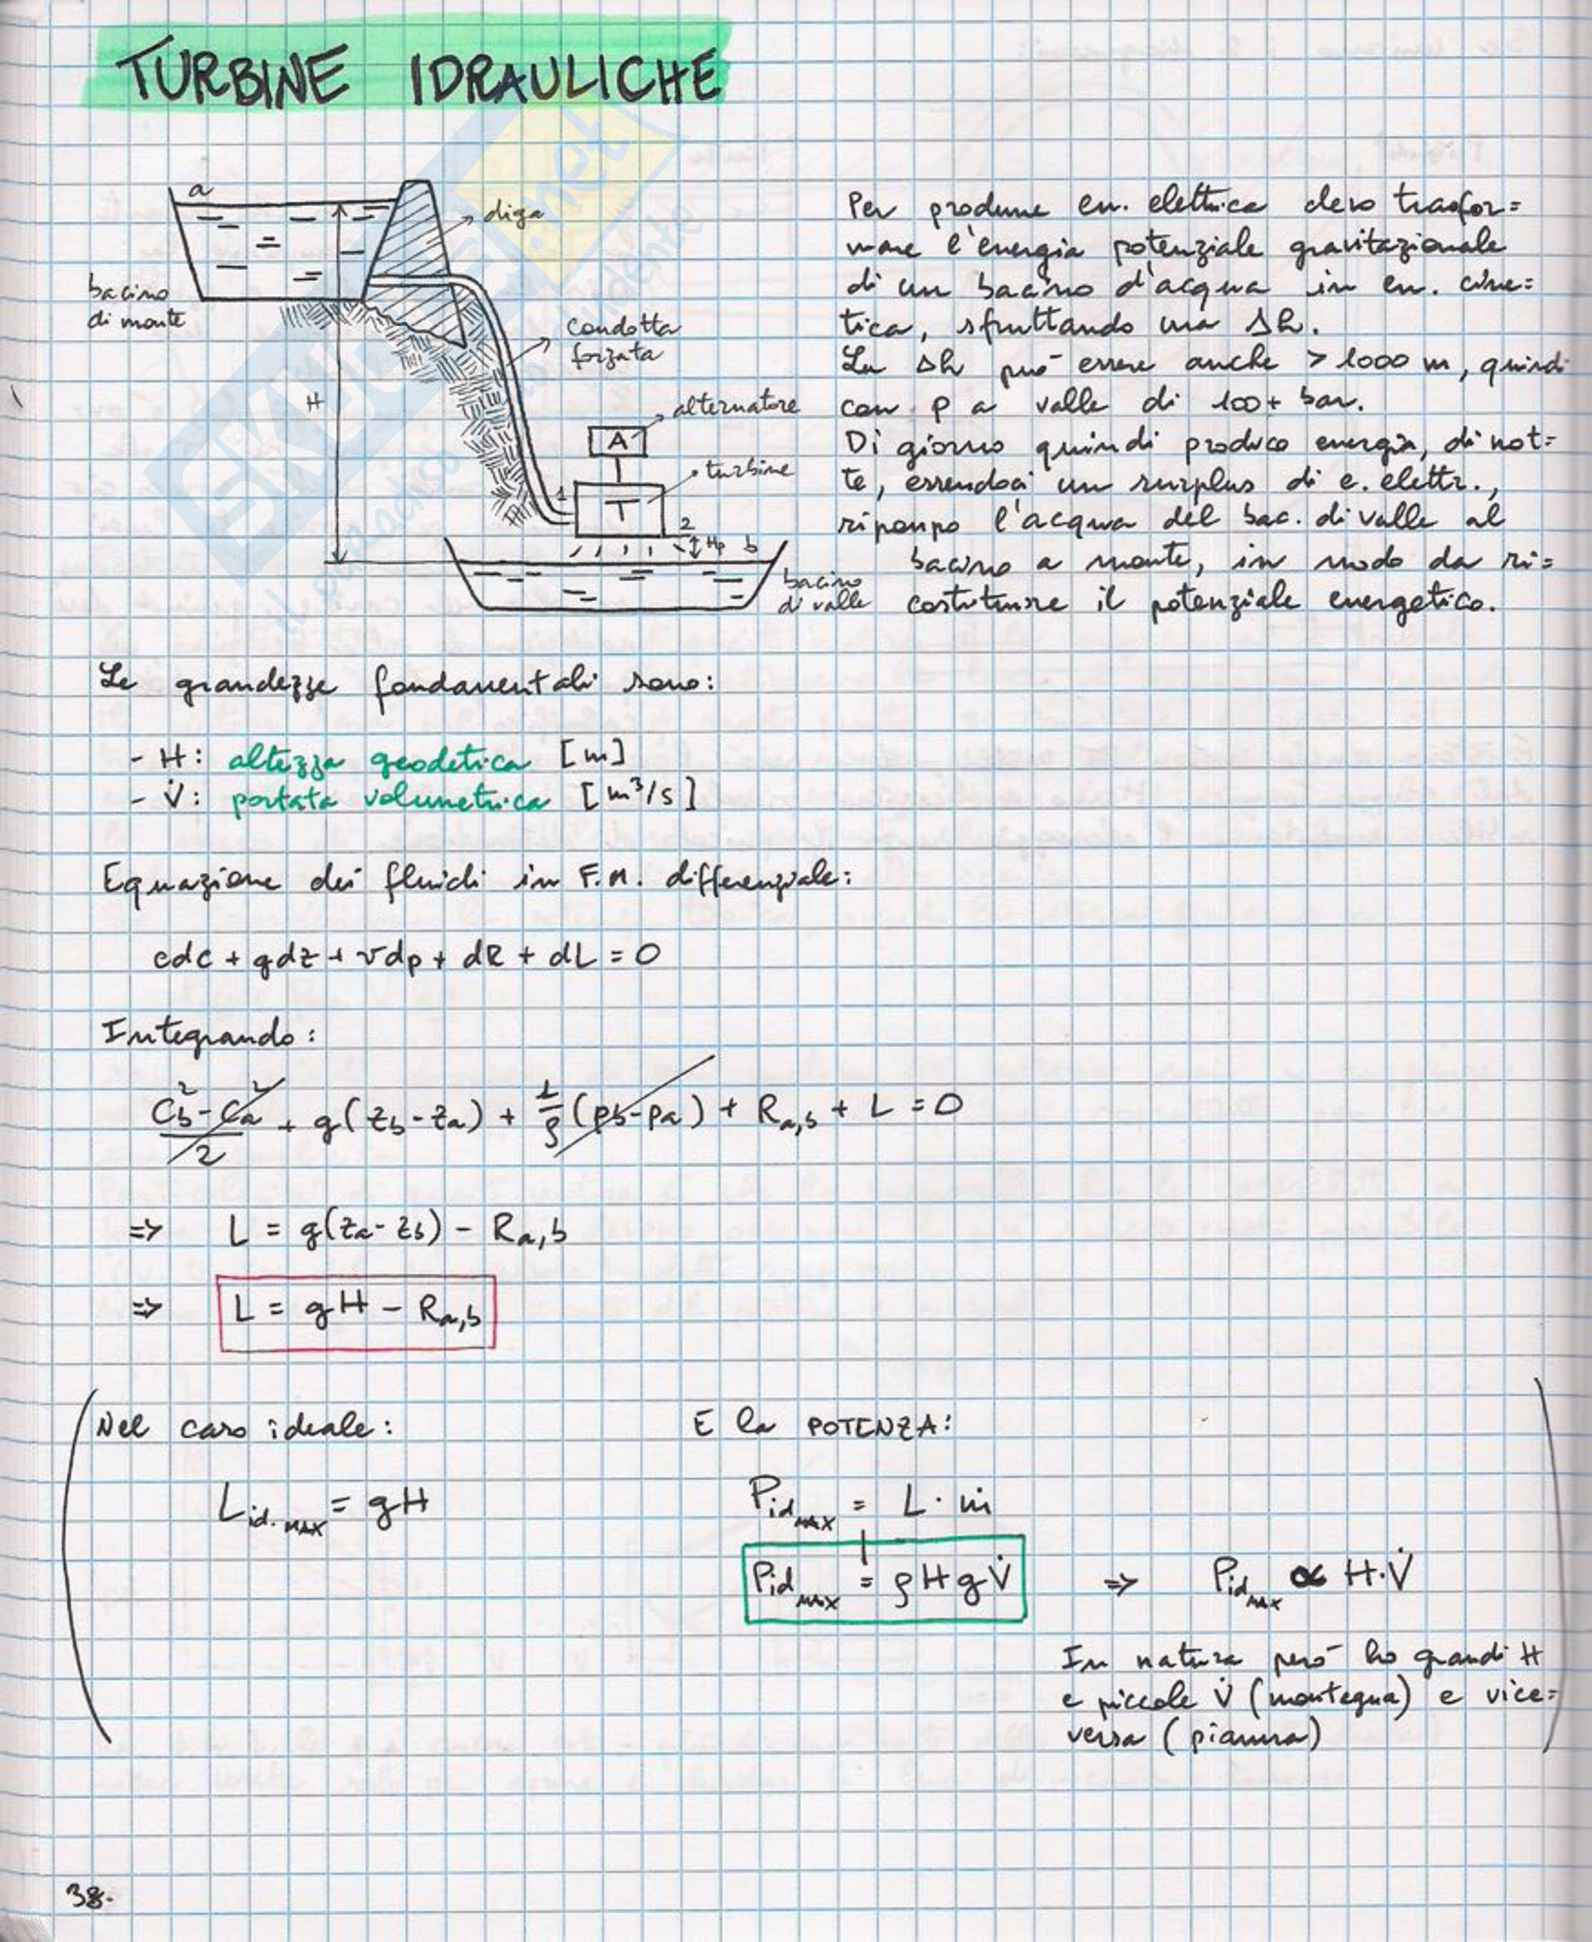 TURBINE IDRAULICHE
a
diga
bacino
di monte
condotta
forzata
H
alternatore
A
turbine
1
T
2
Hp
b
bacino
di valle
Per produrre en. elettrica devo trasfor=
mare l'energia potenziale gravitazionale
di un bacino d'acqua in en. cine=
tica, sfruttando una Δh.
La Δh può essere anche > 1000 m, quindi
con p a valle di 100+ bar.
Di giorno quindi produco energia, di not=
te, essendoci un surplus di e. elettr.,
ripompo l'acqua del bac. di valle al
bacino a monte, in modo da ri=
costituire il potenziale energetico.
Le grandezze fondamentali sono:
- H: altezza geodetica [m]
- V̇: portata volumetrica [m³/s]
Equazione dei fluidi in F.M. differenziale:
cdc + gdz + vdp + dR + dL = 0
Integrando:
(c_b² - c_a²)/2 + g(z_b - z_a) + 1/ρ (p_b - p_a) + R_a,b + L = 0
=> L = g(z_a - z_b) - R_a,b
=> L = gH - R_a,b
Nel caso ideale:
L_id.MAX = gH
E la POTENZA:
P_id_MAX = L · ṁ
P_id_MAX = ρ H g V̇ => P_id_MAX ∝ H·V̇
In natura però ho grandi H
e piccole V̇ (montagna) e vice=
versa (pianura)
38.
SKUOLA.net